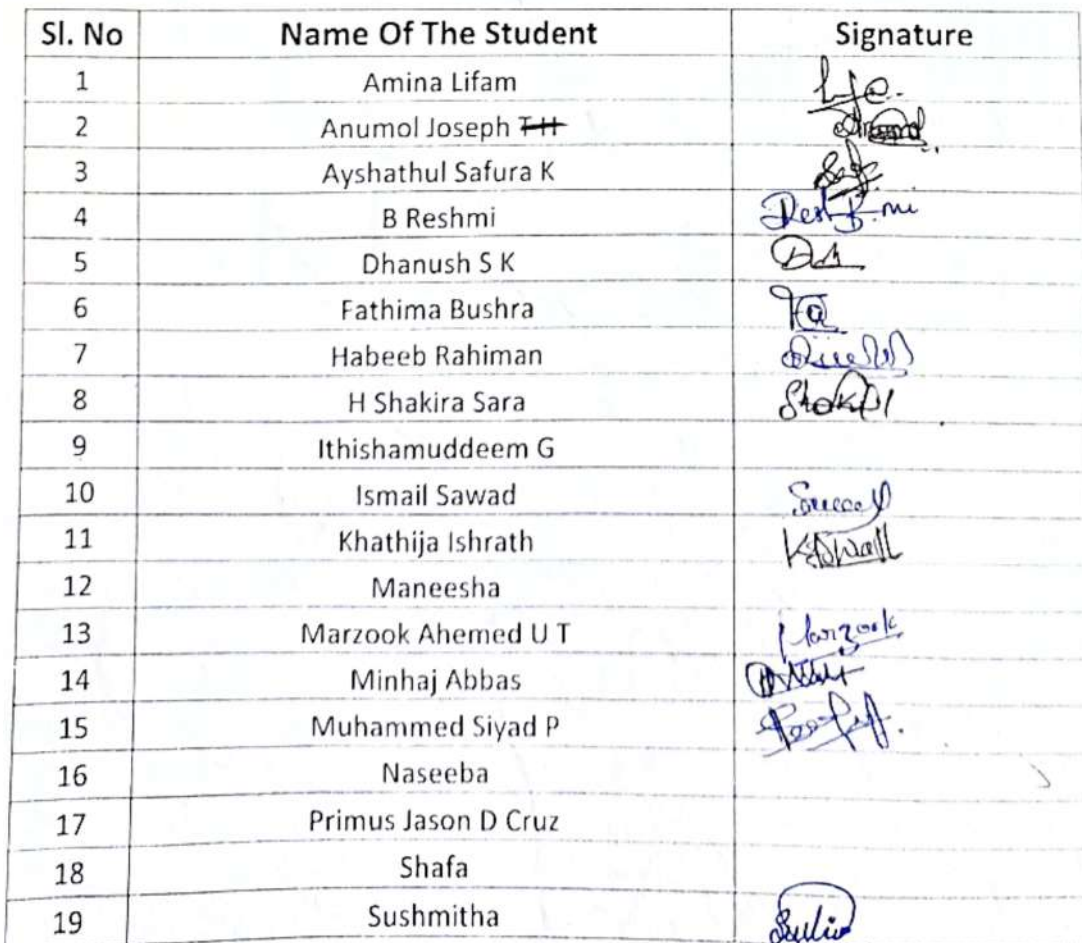 Sl. No Name Of The Student Signature
1 Amina Lifam
2 Anumol Joseph T H
3 Ayshathul Safura K
4 B Reshmi
5 Dhanush S K
6 Fathima Bushra
7 Habeeb Rahiman
8 H Shakira Sara
9 Ithishamuddeem G
10 Ismail Sawad
11 Khathija Ishrath
12 Maneesha
13 Marzook Ahemed U T Marzook
14 Minhaj Abbas
15 Muhammed Siyad P
16 Naseeba
17 Primus Jason D Cruz
18 Shafa
19 Sushmitha